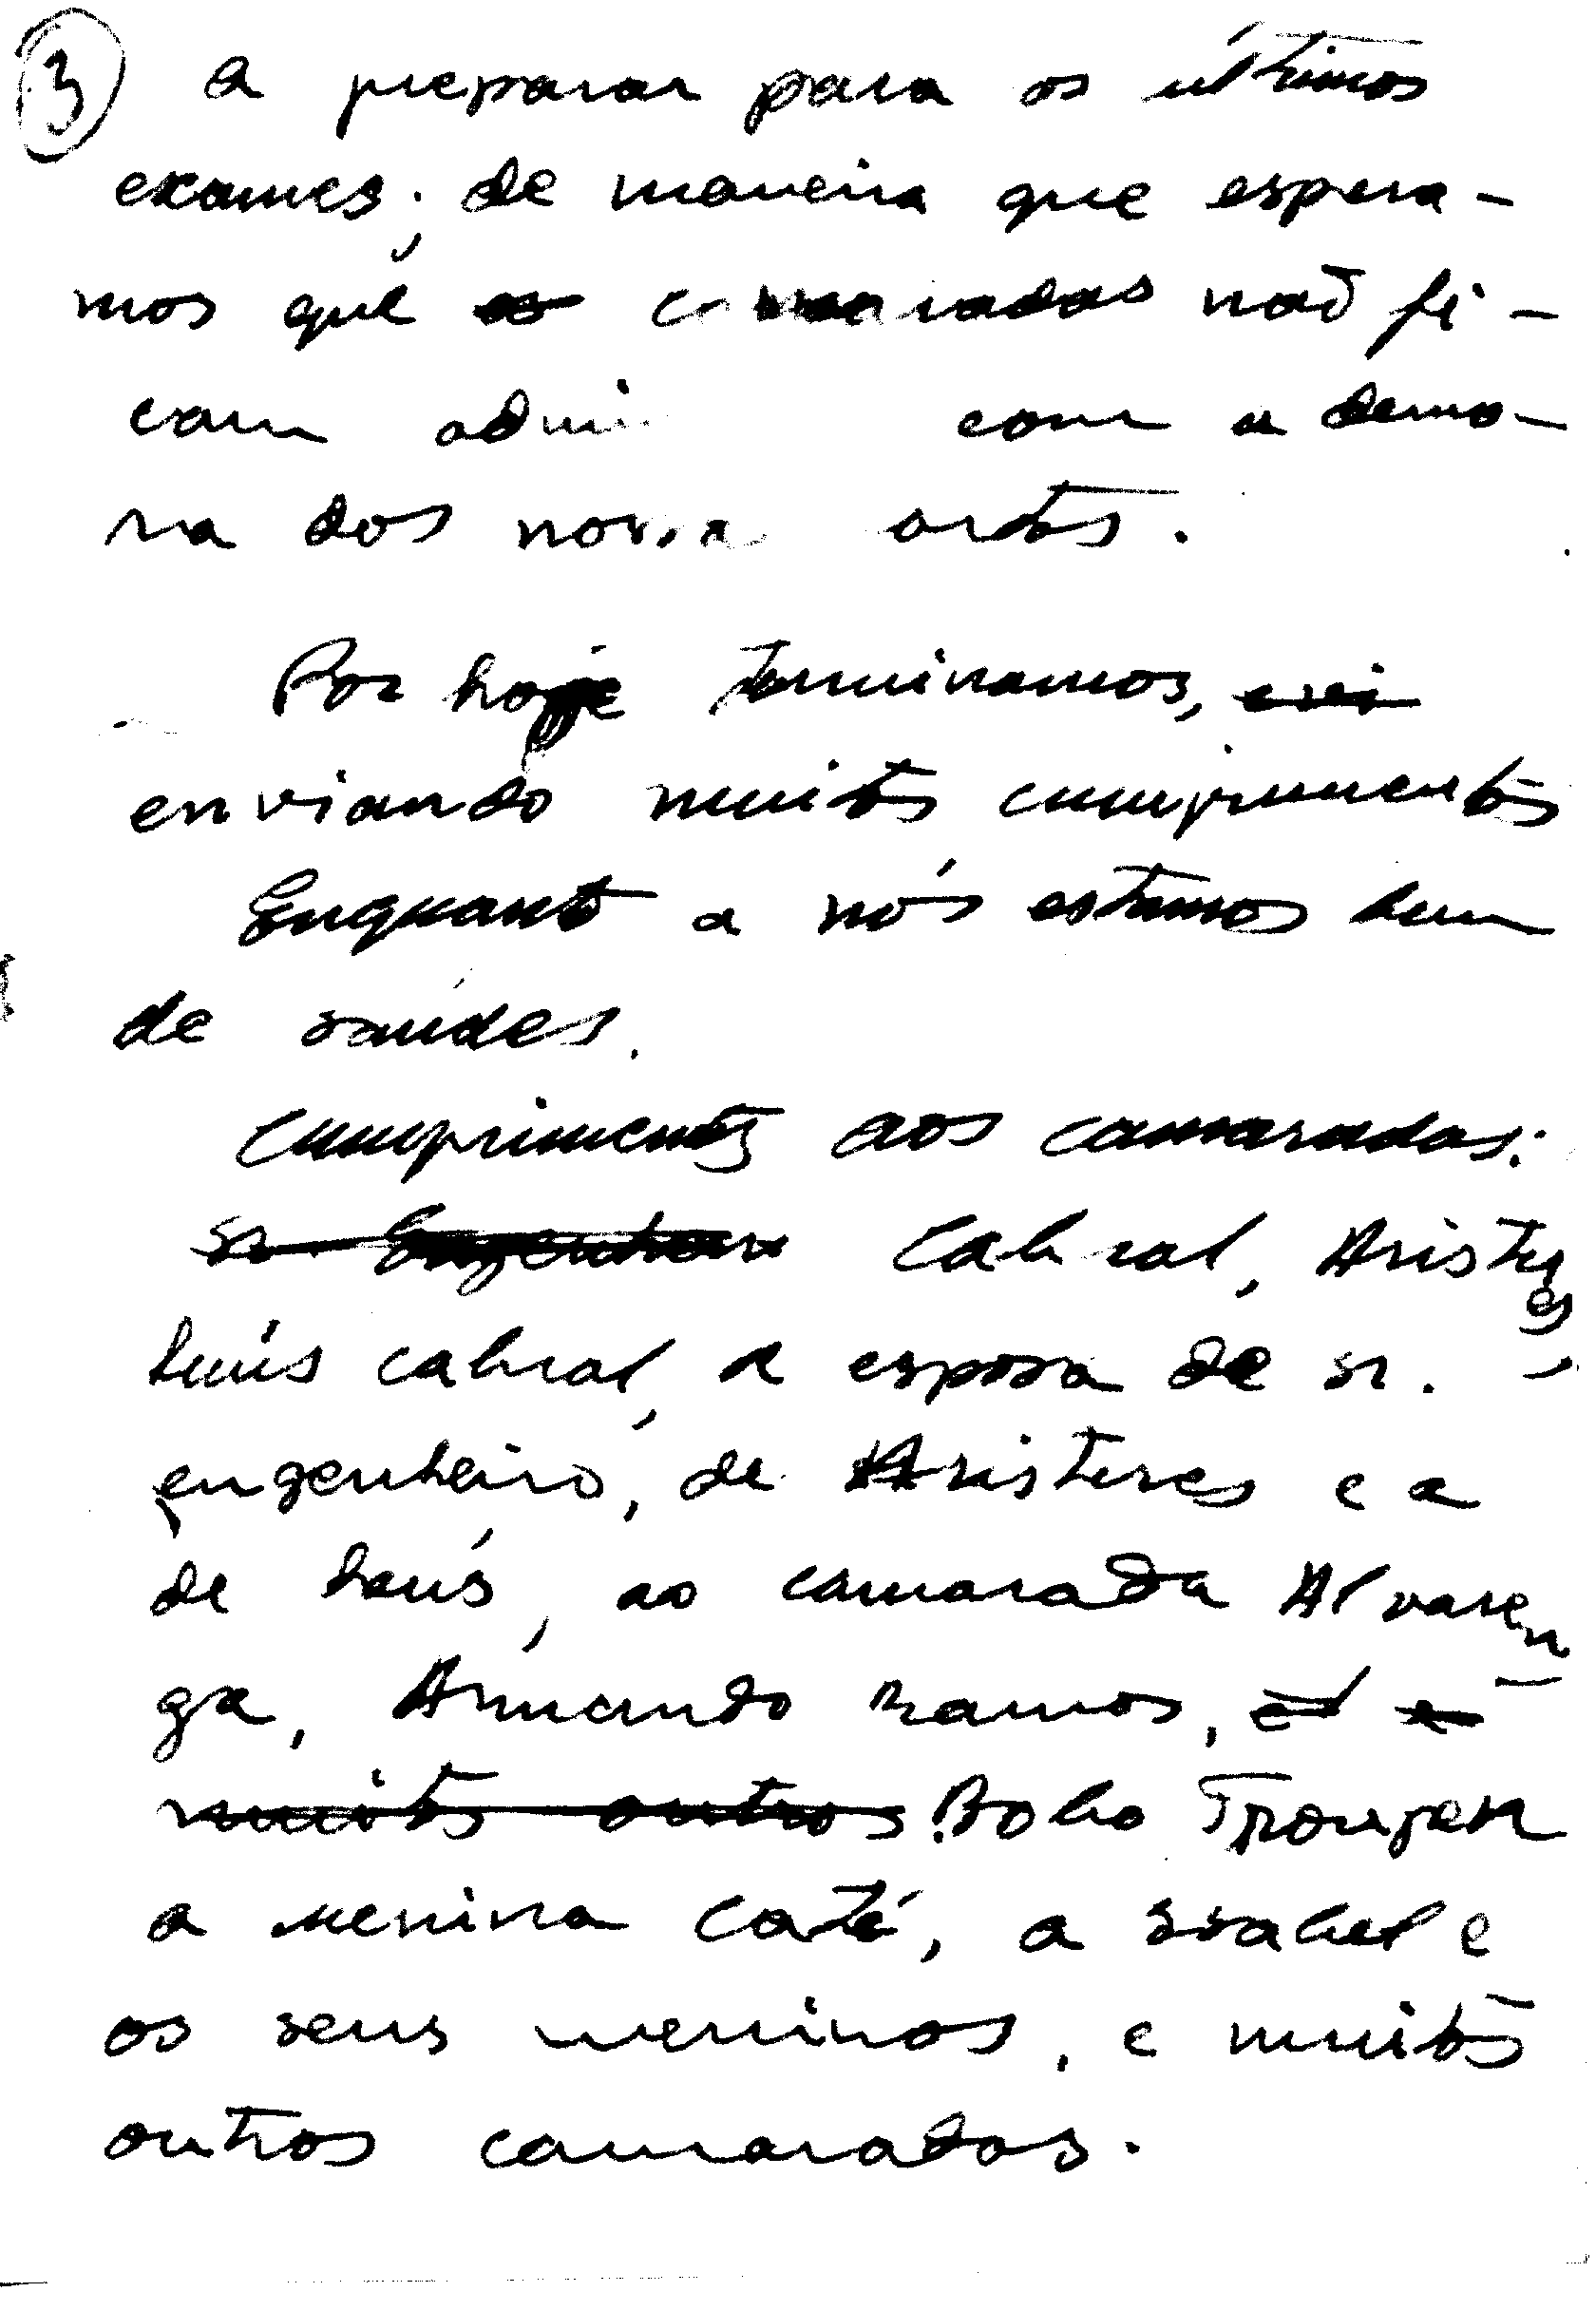 3 a preparar para os últimos
exames; de maneira que espera-
mos que os camaradas não fi-
cam admi com a demo-
ra dos
Por hoje terminamos,
enviando muitos cumprimentos
Enquanto a nós estamos bem
de saúdes.
Cumprimentos aos camaradas:
sr. Engenheiro Cabral, Aristeres,
Luís Cabral, a esposa de sr.
engenheiro, de Aristeres e a
de Luís, ao camarada Alvaren
ga, Armando Ramos,
muitos outros Bobo
a menina Caté, a Isabel e
os seus meninos, e muitos
outros camaradas.